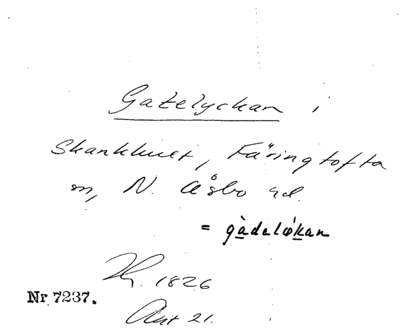 Gatelyckan i
Skankhult, Färingtofta
sn, N. Åsbo hd.
= gàdelykan
1826
Nr 7237.
Akt 21.